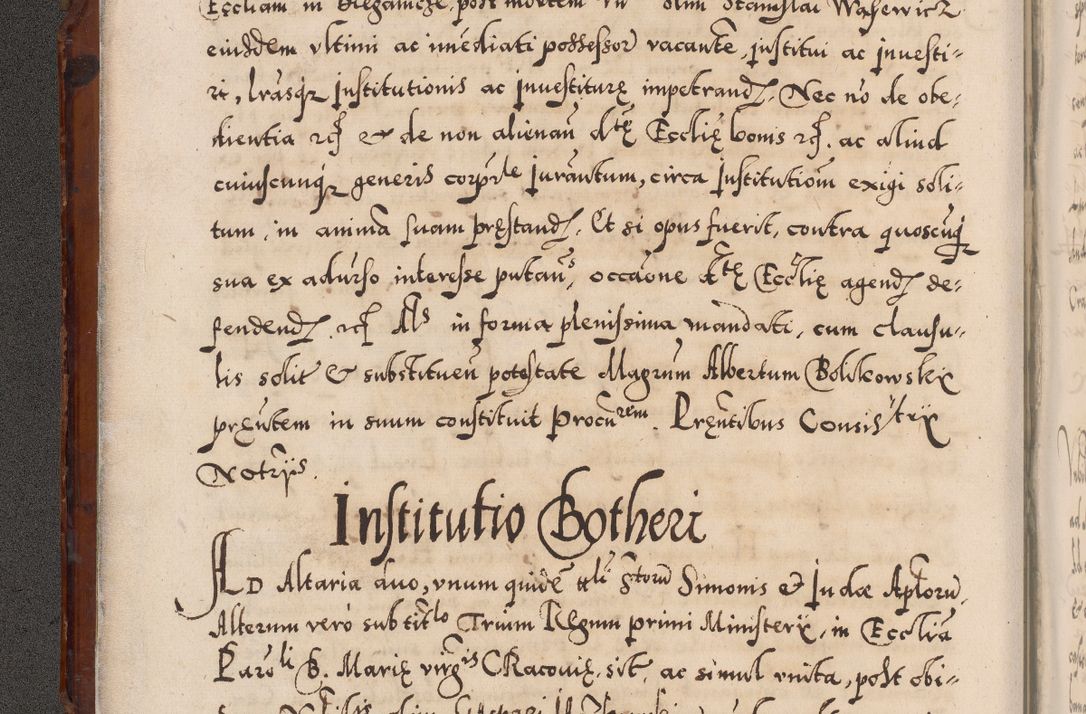 Eccliam in post mortem olim Stanislai Wąsewicz
eiusdem vltimi ac im̄ediati possessor̄ vacantē, jnstitui ac jnuesti-
ri, lr̄asq₃ jnstitutionis ac jnvestiturę impetrand. Nec nō de obe-
dientia rc̄ & de non alienan̄ dtę Eccl̄ię bonis rc̄. ac aliud
cuiuscunq₃ generis corpr̄le jurāntum, circa jnstitutiom̄ exigi soli-
tum, in animā suam pręstand. Et si opus fuerit, contra quoscūq₃
sua ex adūrso interesse putan̄s, occāone dtę Eccl̄ię agend de-
fendend rc̄ Als in forma plenissima mandati, cum clausu-
lis solit & substituen̄ potestate Magr̄um Albertum Bolikowskix
pręn̄tem in suum constituit Procu̅rem. Pręn̄tibus Consistrijx
Notr̄ijs.
Institutio Botheri
AD Altaria duo, vnum quidē ttli Sctoru̅ Simonis & Judæ Apl̄oru̅,
Alterum vero sub titlo Trium Regum primi Ministerij, in Eccl̄ia
Paroli B. Marię virgis CRacouię, sit, ac simul vnita, post obi-